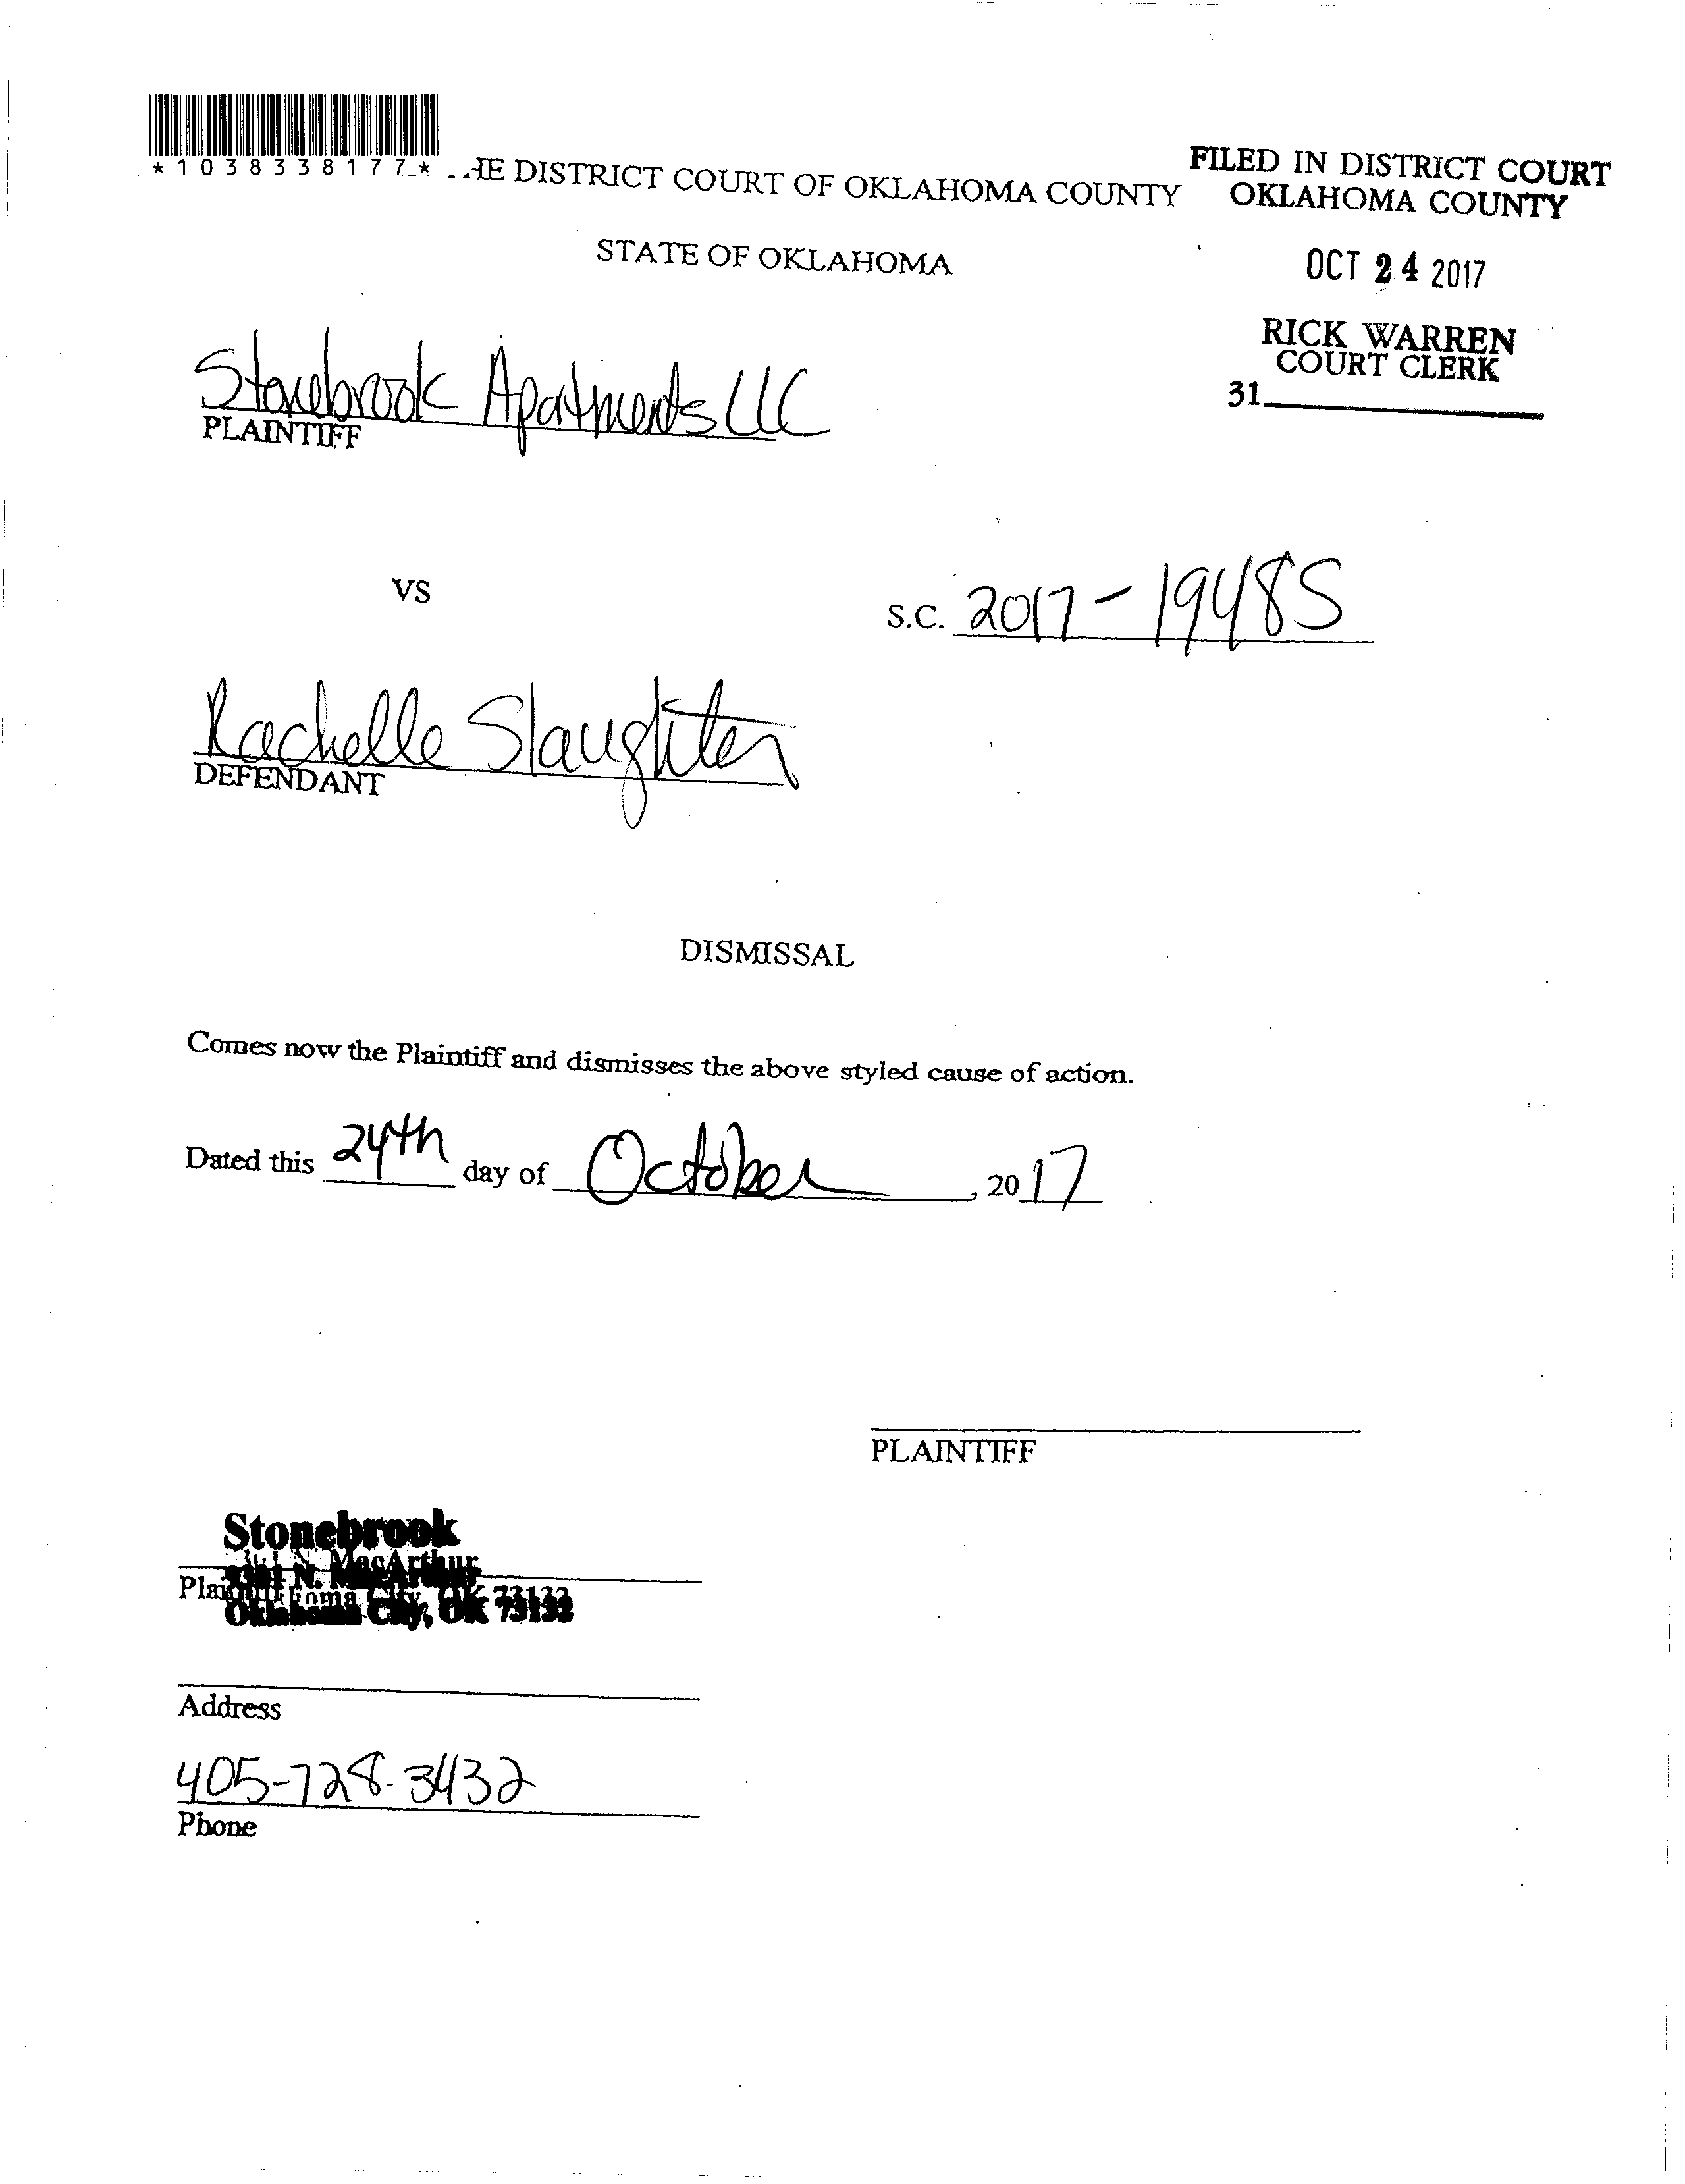 *1038338177*
HE DISTRICT COURT OF OKLAHOMA COUNTY
FILED IN DISTRICT COURT
OKLAHOMA COUNTY
STATE OF OKLAHOMA
OCT 24 2017
RICK WARREN
COURT CLERK
31
Stonebrook Apartments LLC
PLAINTIFF
VS
S.C. 2017-19485
Rachelle Slaughter
DEFENDANT
DISMISSAL
Comes now the Plaintiff and dismisses the above styled cause of action.
Dated this 24th day of October, 2017
PLAINTIFF
Stonebrook
N. MacArthur
Oklahoma City, OK 73132
Address
405-728-3432
Phone